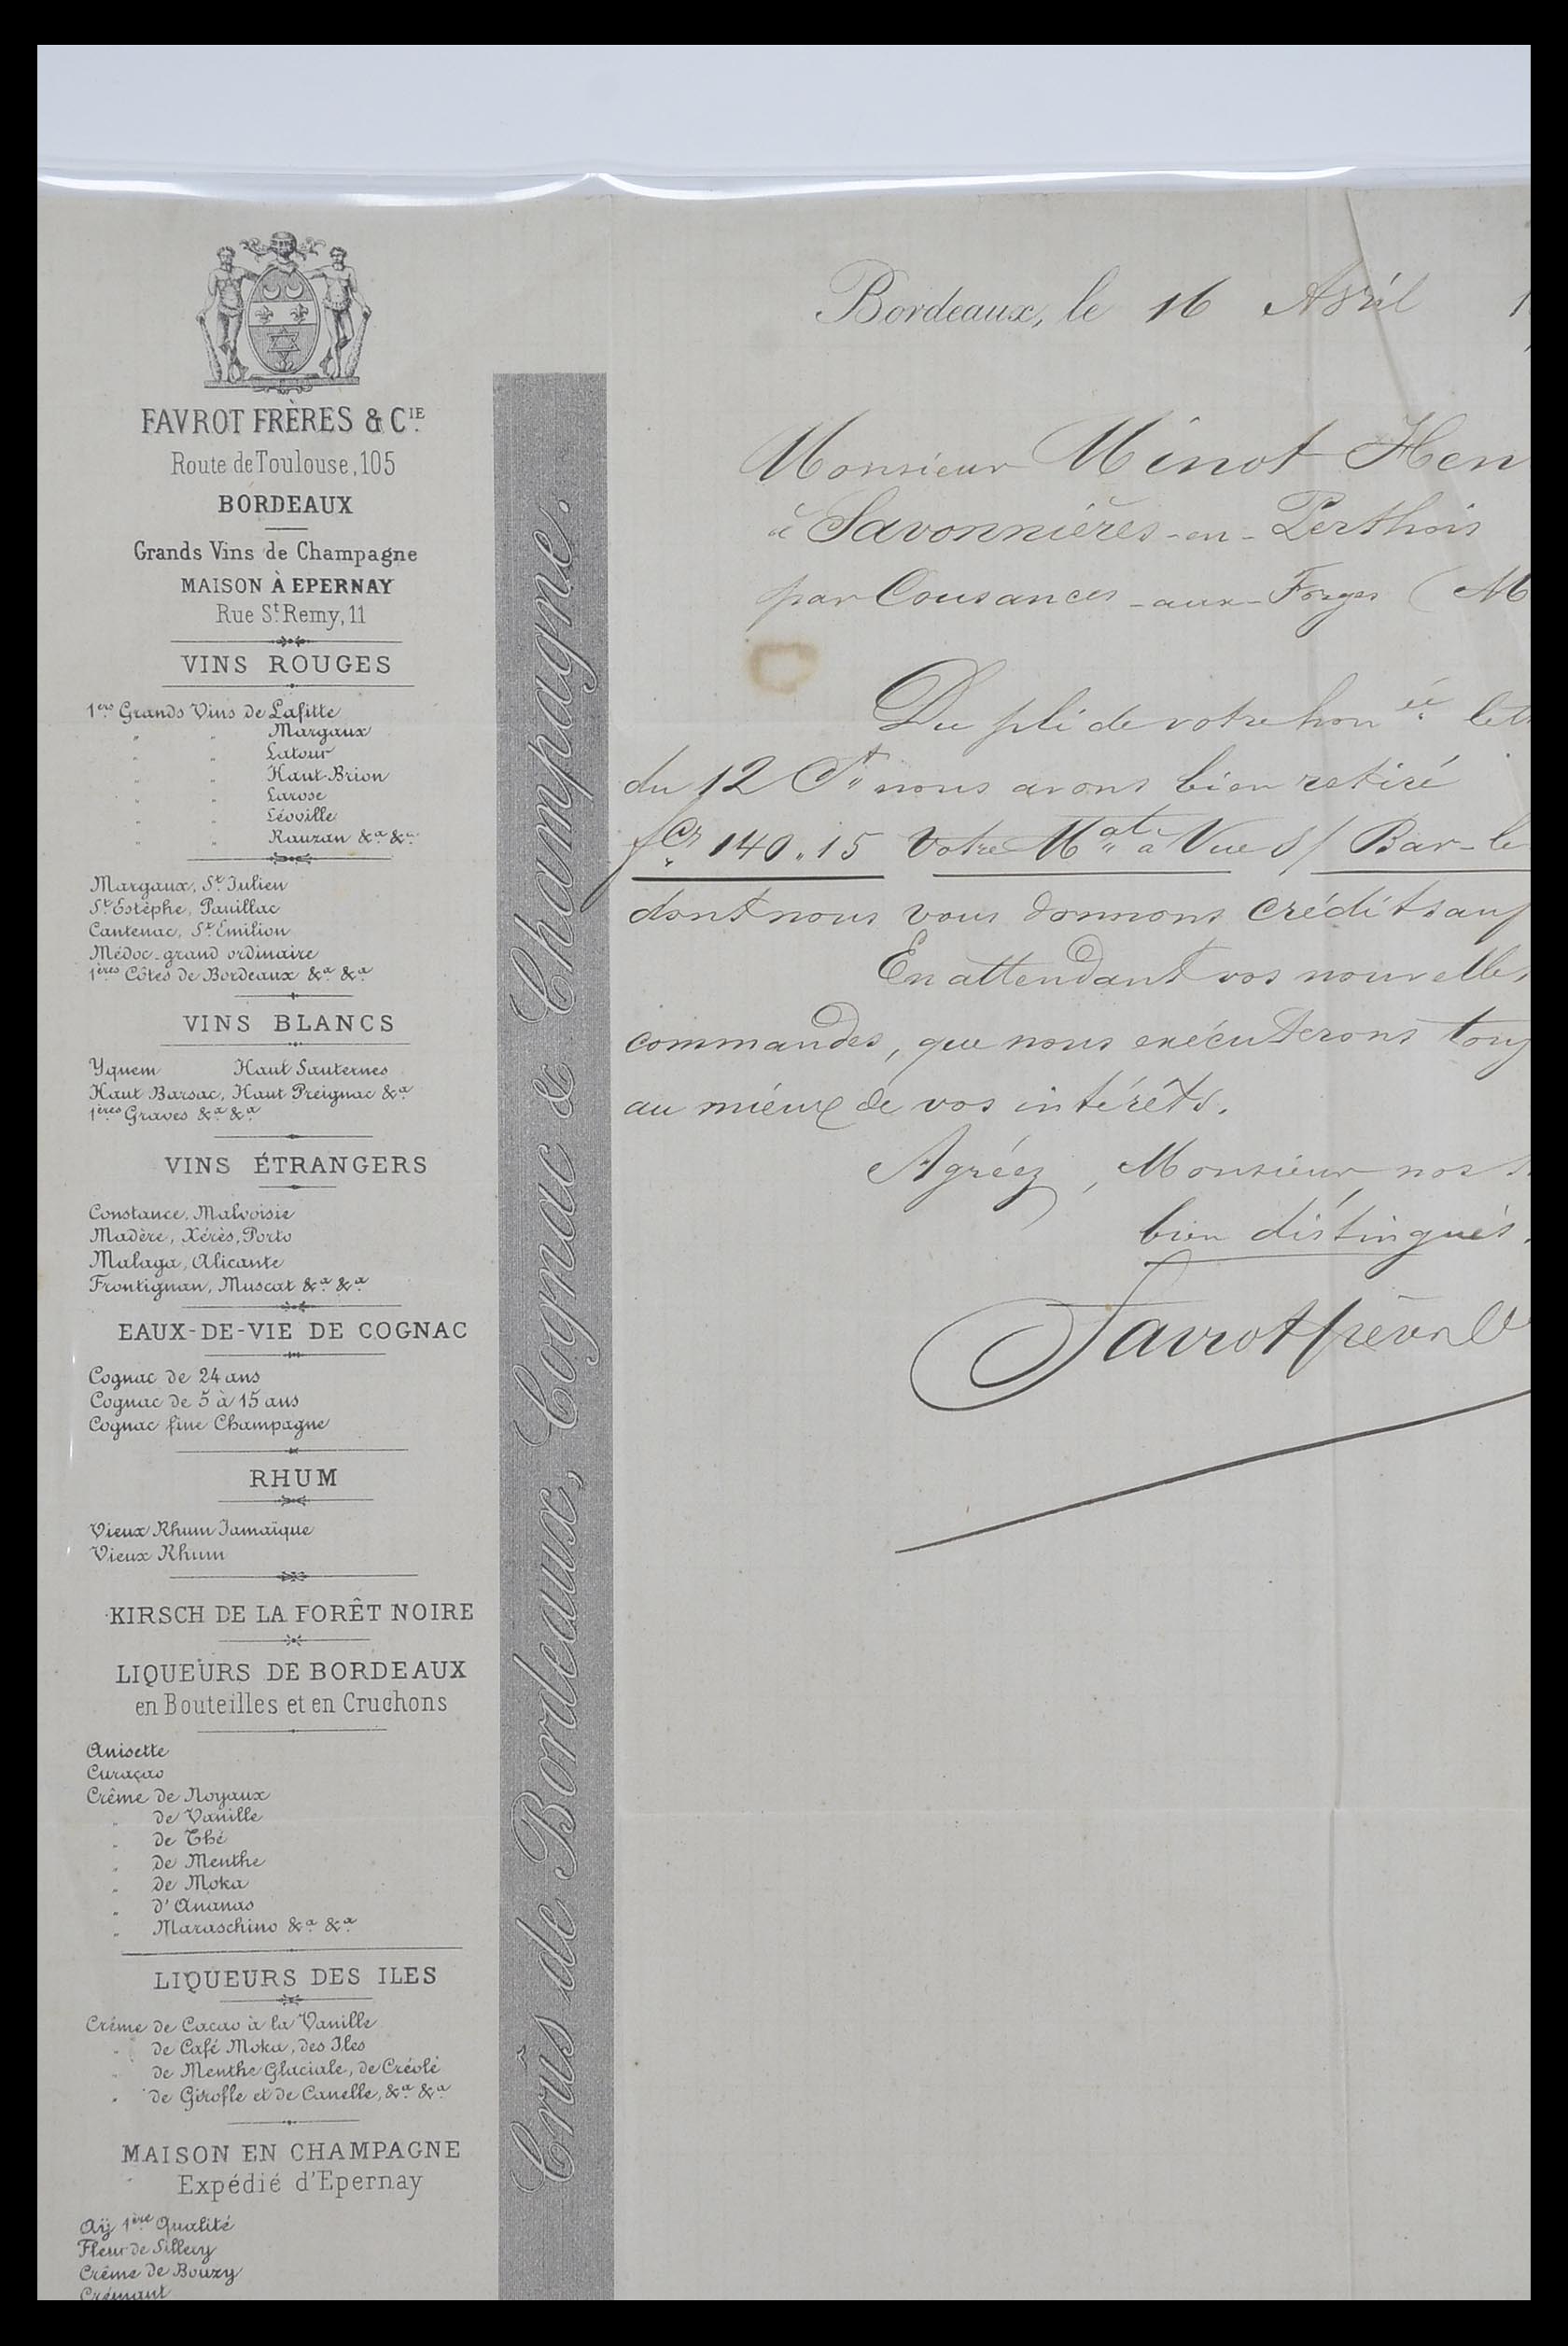 FAVROT FRÈRES & CIE
Route de Toulouse, 105
BORDEAUX
Grands Vins de Champagne
MAISON À EPERNAY
Rue St Remy, 11
VINS ROUGES
1ers Grands Vins de Lafitte
" " Margaux
" " Latour
" " Haut-Brion
" " Larose
" " Léoville
" " Rauzan &a &a
Margaux, St Julien
St Estèphe, Pauillac
Cantenac, St Emilion
Médoc-grand ordinaire
1ères Côtes de Bordeaux &a &a
VINS BLANCS
Yquem Haut Sauternes
Haut Barsac, Haut Preignac &a
1ères Graves &a &a
VINS ÉTRANGERS
Constance, Malvoisie
Madère, Xérès, Porto
Malaga, Alicante
Frontignan, Muscat &a &a
EAUX-DE-VIE DE COGNAC
Cognac de 24 ans
Cognac de 5 à 15 ans
Cognac fine Champagne
RHUM
Vieux Rhum Jamaïque
Vieux Rhum
KIRSCH DE LA FORÊT NOIRE
LIQUEURS DE BORDEAUX
en Bouteilles et en Cruchons
Anisette
Curaçao
Crême de Noyaux
" de Vanille
" de Thé
" de Menthe
" de Moka
" d'Ananas
" Maraschino &a &a
LIQUEURS DES ILES
Crême de Cacao à la Vanille
" de Café Moka, des Iles
" de Menthe Glaciale, de Créole
" de Girofle et de Canelle, &a &a
MAISON EN CHAMPAGNE
Expédié d'Epernay
Aÿ 1ère Qualité
Fleur de Sillery
Crême de Bouzy
Crémant
Crûs de Bordeaux, Cognac & Champagne.
Bordeaux, le 16 Avril 1
Monsieur Minot Hen
à Savonnières-en-Perthois
par Cousances-aux-Forges (M
Du pli de votre honée lett
du 12 Ct nous avons bien retiré
fcs 140.15 Votre Mat à Vue S/ Bar-le
dont nous vous donnons crédit sauf
En attendant vos nouvelles
commandes, que nous exécuterons touj
au mieux de vos intérêts.
Agréez, Monsieur, nos s
bien distingués.
Favrot frères C